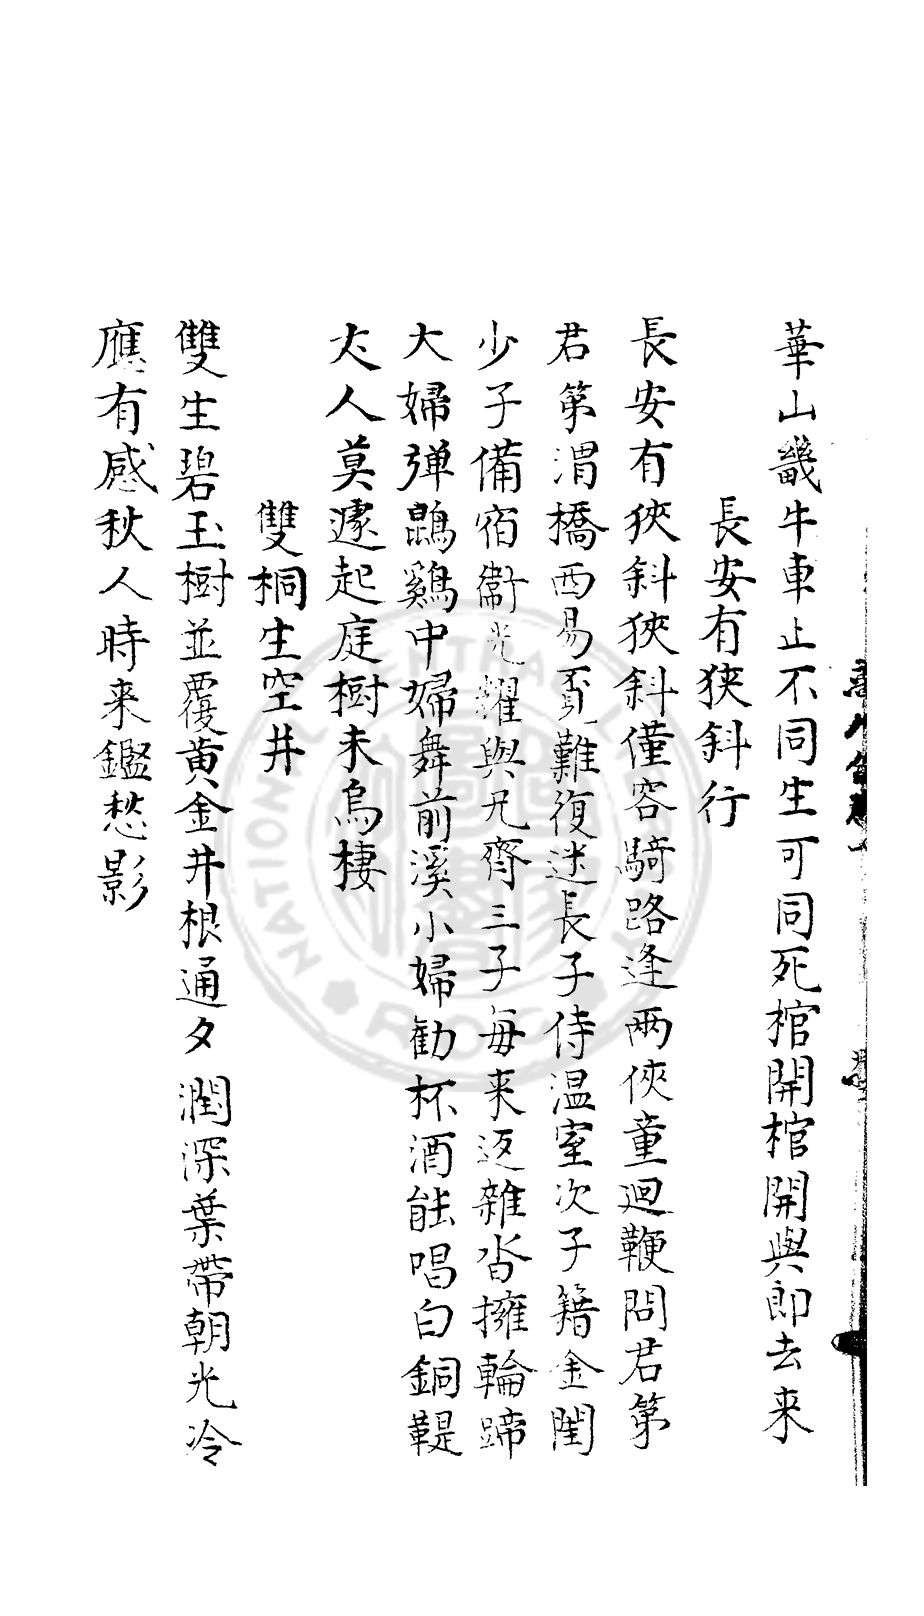 華山畿牛車止不同生可同死棺開棺開與郎去来
長安有狹斜行
長安有狹斜狹斜僅容騎路逢兩俠童迴鞭問君第
君第渭橋西易覓難復迷長子侍温室次子籍金閨
少子備宿衛光耀與兄齊三子每来返雜沓擁輪蹄
大婦弹鵾鷄中婦舞前溪小婦勸杯酒能唱白銅鞮
丈人莫遽起庭樹未烏棲
雙桐生空井
雙生碧玉樹並覆黄金井根通夕潤深葉帶朝光冷
應有感秋人時来鑑愁影
NATIONAL CENTRAL LIBRARY
R.O.C.